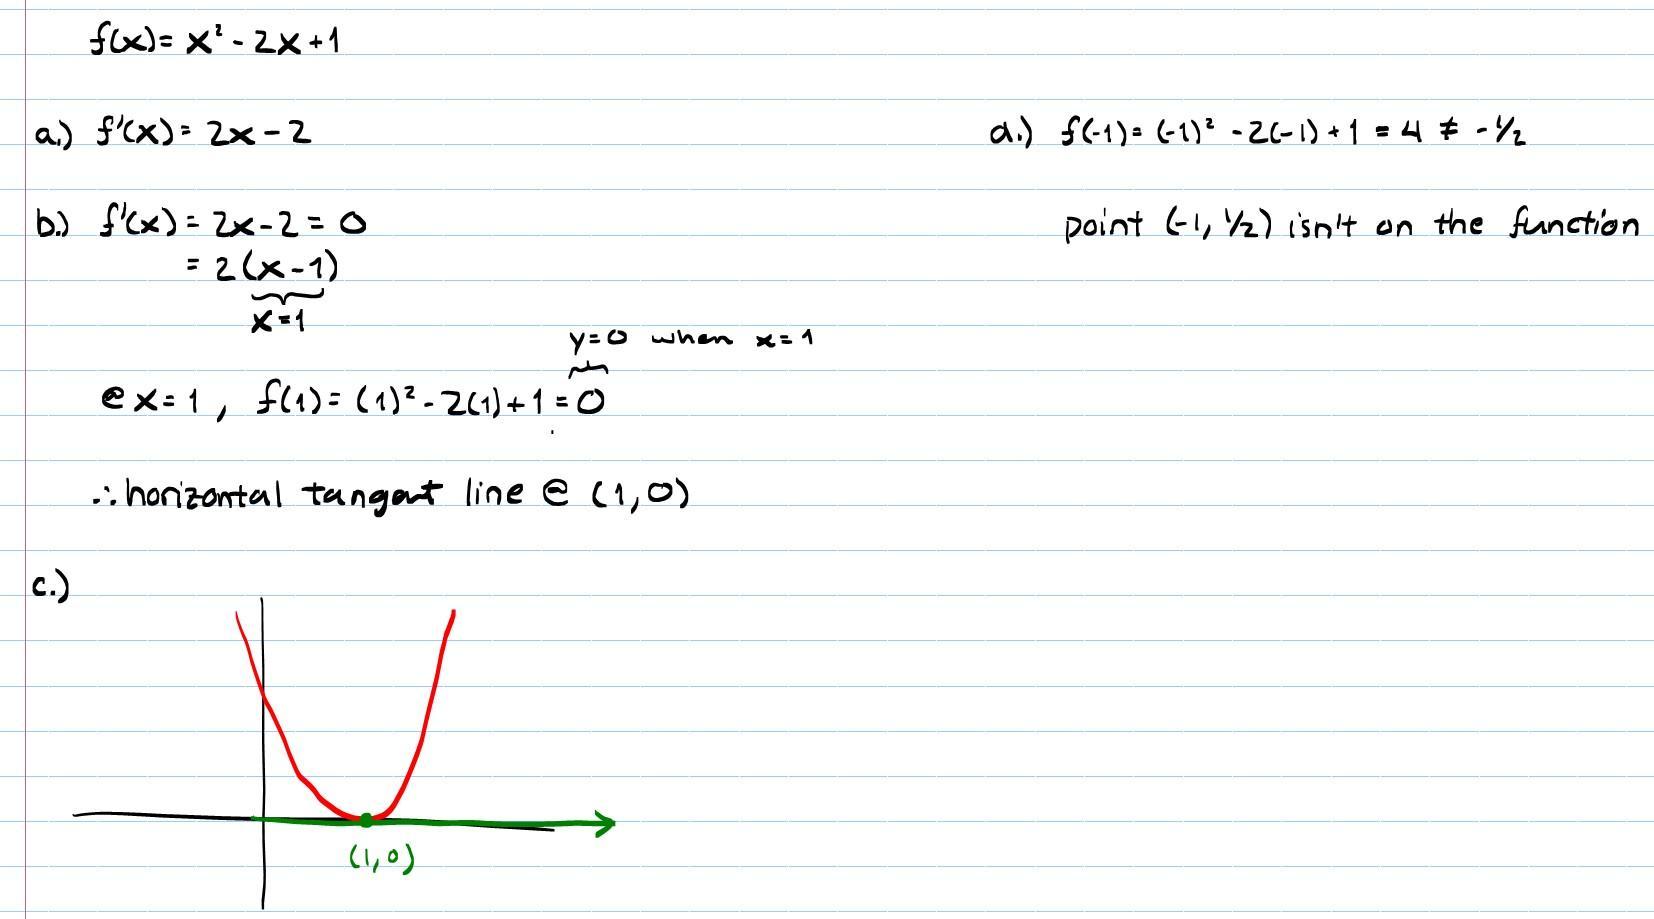 f(x)= x² - 2x+1
a.) f'(x)= 2x-2
b.) f'(x) = 2x-2 = 0
= 2(x-1)
x=1
y=0 when x=1
@ x=1, f(1) = (1)² - 2(1)+1 = 0
∴ horizontal tangent line @ (1,0)
c.)
(1,0)
d.) f(-1)= (-1)² - 2(-1) + 1 = 4 ≠ -1/2
point (-1, 1/2) isn't on the function